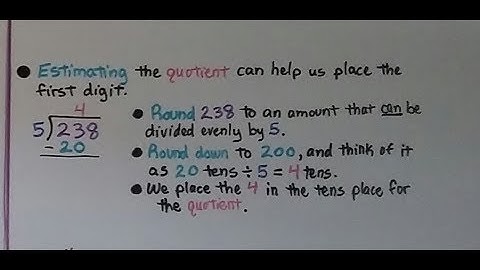 ● Estimating the quotient can help us place the
first digit.
4
5)238
-20
● Round 238 to an amount that can be
divided evenly by 5.
● Round down to 200, and think of it
as 20 tens ÷ 5 = 4 tens.
● We place the 4 in the tens place for
the quotient.